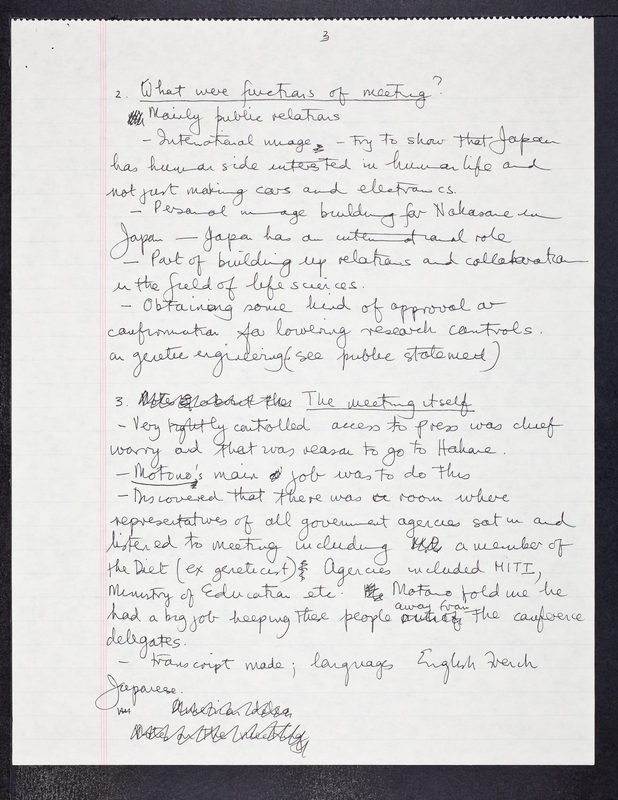 3
2. What were functions of meeting?
Mainly public relations
- International image, - try to show that Japan
has human side interested in human life and
not just making cars and electronics.
- Personal image building for Nakasone in
Japan - Japan has an international role
- Part of building up relations and collaboration
in the field of life sciences.
- Obtaining some kind of approval or
confirmation for lowering research controls.
on genetic engineering (see public statement)
3. Notes about the The meeting itself
- Very tightly controlled access to press was chief
worry and that was reason to go to Hakone.
- Motono's main job was to do this
- Discovered that there was a room where
representatives of all government agencies sat in and
listened to meeting including a member of
the Diet (ex geneticist) Agencies included MITI,
Ministry of Education etc. Motono told me he
had a big job keeping these people away from the conference
delegates.
- transcript made; languages English French
Japanese.